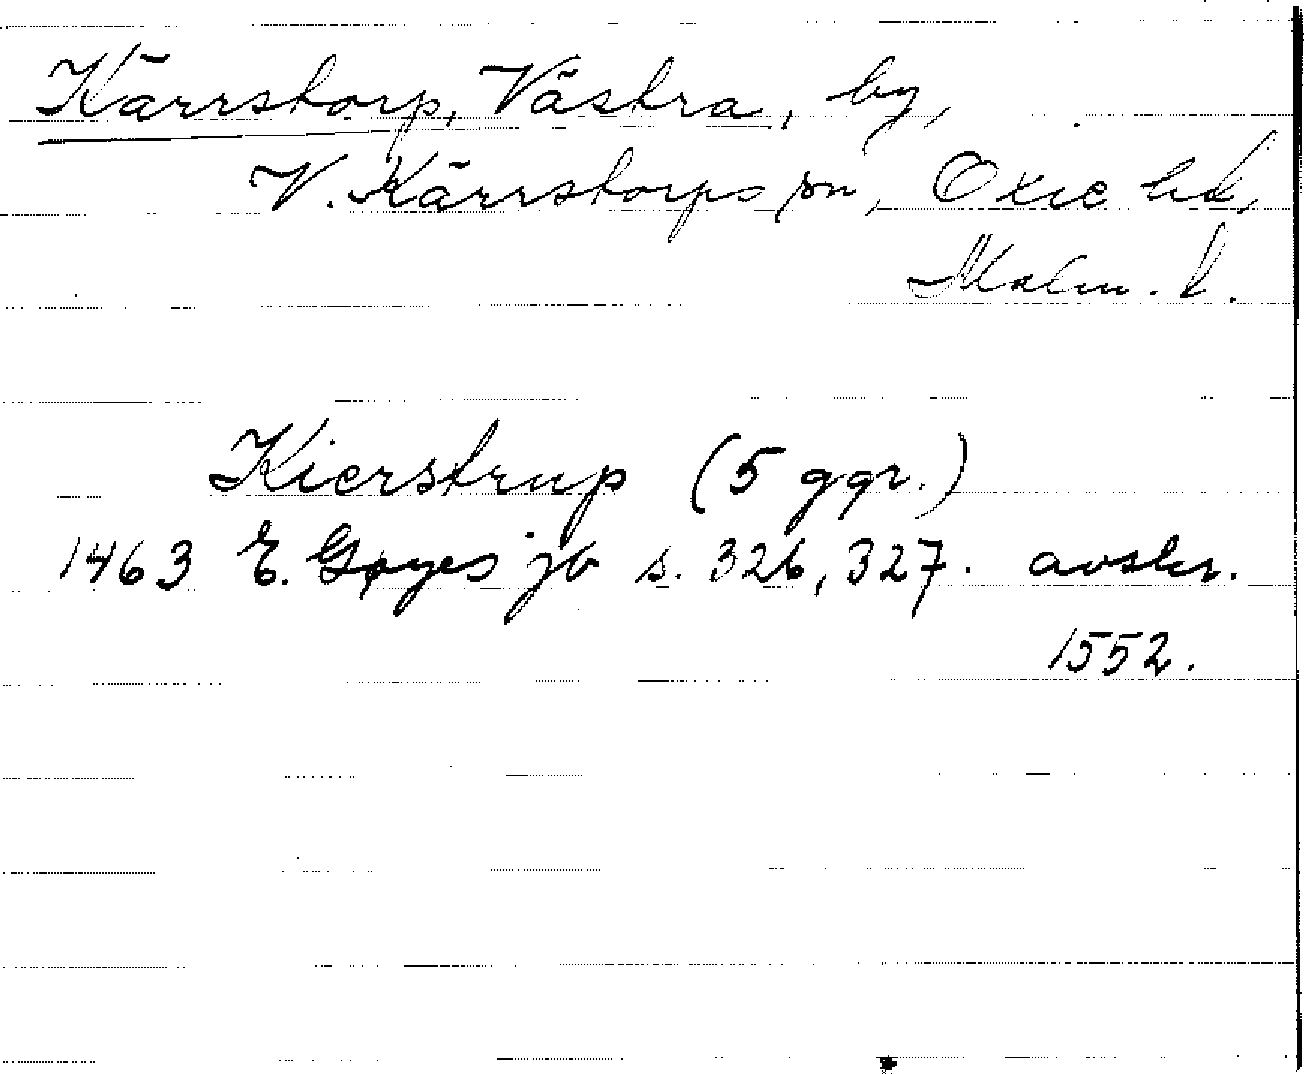 Kärrstorp, Västra, by,
V. Kärrstorps sn, Oxie hd,
Malm. l.
Kierstrup (5 ggr.)
1463 E. Gøyes jb s. 326, 327. avskr.
1552.